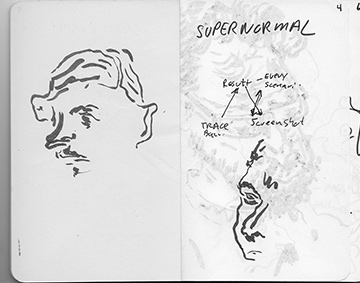 4
SUPERNORMAL
Result - Every
Scenari..
TRACE
Screenshot